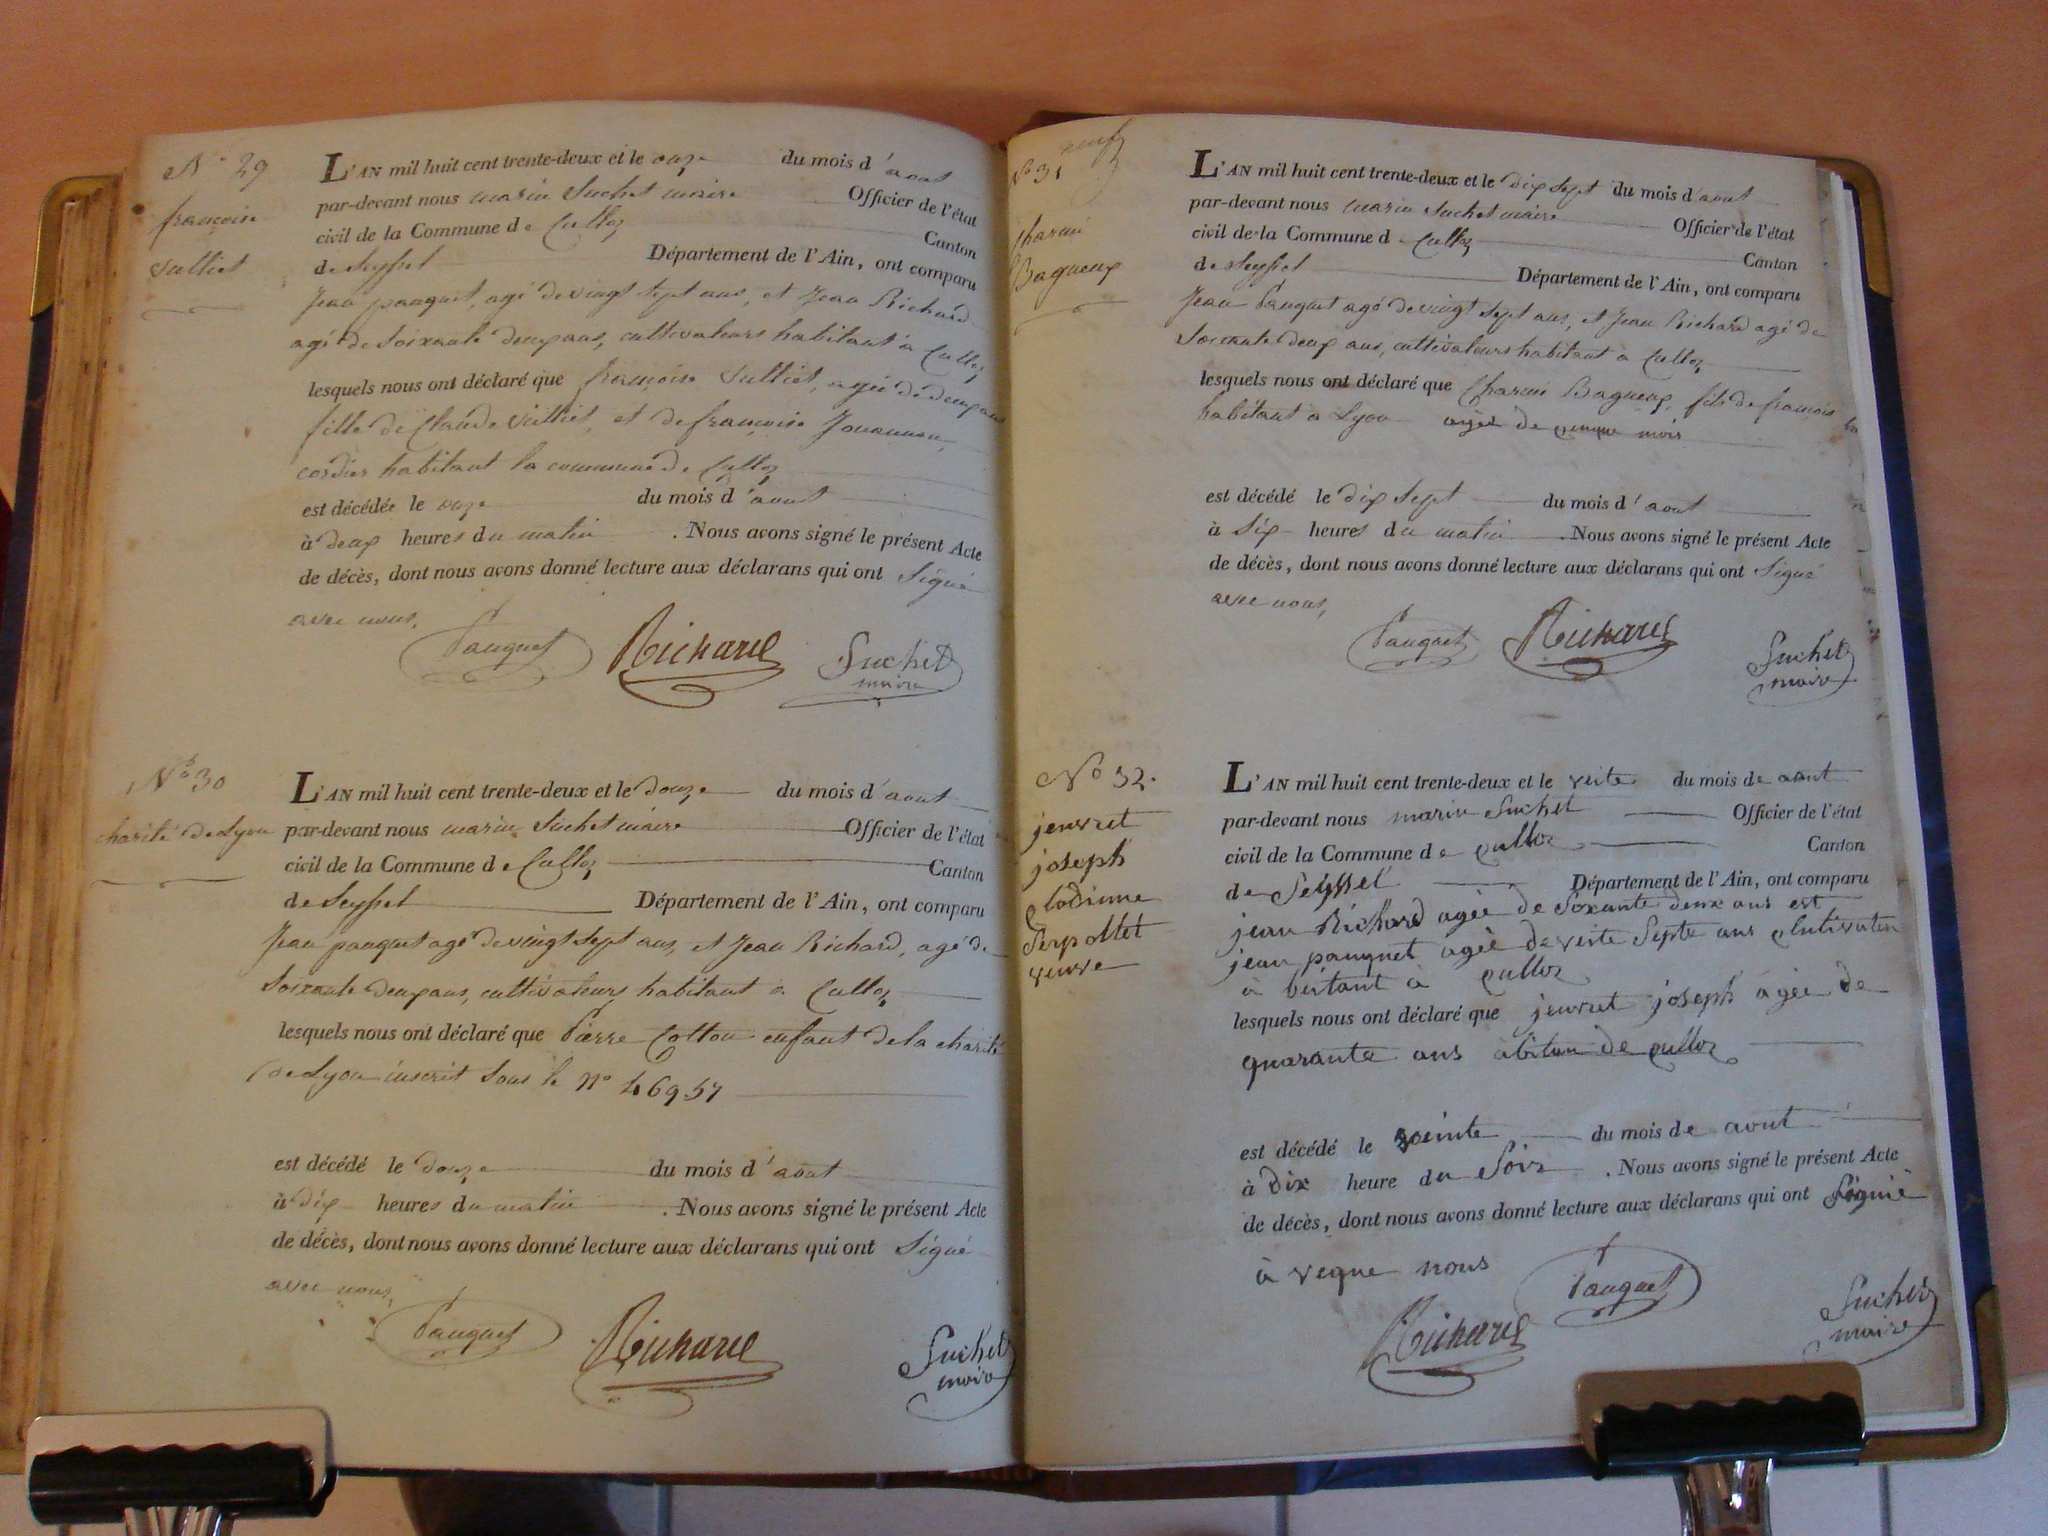 N° 29
françoise
Vulliet
L'AN mil huit cent trente-deux et le onze du mois d'aout
par-devant nous marin Suchet maire Officier de l'état
civil de la Commune de Culloz Canton
de Seyssel Département de l'Ain, ont comparu
Jean pauquet, agé de vingt sept ans, et Jean Richard
agé de soixante deux ans, cultivateurs habitant à Culloz
lesquels nous ont déclaré que françoise Vulliet, agée de deux ans
fille de Claude Vulliet, et de françoise Jouannon,
cordier habitant la commune de Culloz
est décédée le onze du mois d'aout
à deux heures du matin . Nous avons signé le présent Acte
de décès, dont nous avons donné lecture aux déclarans qui ont Signé
avec nous.
Pauquet Richard Suchet
maire
N° 30
charité de Lyon
L'AN mil huit cent trente-deux et le douze du mois d'aout
par-devant nous marin Suchet maire Officier de l'état
civil de la Commune de Culloz Canton
de Seyssel Département de l'Ain, ont comparu
Jean pauquet agé de vingt sept ans, et Jean Richard, agé de
soixante deux ans, cultivateurs habitant à Culloz
lesquels nous ont déclaré que Pierre Cotton enfant de la charité
de Lyon inscrit sous le N° 46957
est décédé le douze du mois d'aout
à dix heures du matin . Nous avons signé le présent Acte
de décès, dont nous avons donné lecture aux déclarans qui ont Signé
avec nous,
Pauquet Richard Suchet
maire
neuf
N° 31
Charini
Bagueux
L'AN mil huit cent trente-deux et le dix sept du mois d'aout
par-devant nous marin Suchet maire Officier de l'état
civil de la Commune de Culloz Canton
de Seyssel Département de l'Ain, ont comparu
Jean Pauquet agé de vingt sept ans, et Jean Richard agé de
soixante deux ans, cultivateurs habitant à Culloz
lesquels nous ont déclaré que Charini Bagueux, fils de françois
habitant à Lyon agée de mois
est décédé le dix sept du mois d'aout
à six heures du matin . Nous avons signé le présent Acte
de décès, dont nous avons donné lecture aux déclarans qui ont Signé
avec nous,
Pauquet Richard Suchet
maire
N° 32.
jenvret
joseph
clodinne
Serpollet
veuve
L'AN mil huit cent trente-deux et le veite du mois de aout
par-devant nous marin Suchet Officier de l'état
civil de la Commune de culloz Canton
de Seyssel Département de l'Ain, ont comparu
jean Richard agée de soxante deux ans est
jean pauquet agée de veite septe ans clutivateu
à bistant à culloz
lesquels nous ont déclaré que jenvret joseph agée de
quarante ans abitan de culloz
est décédé le veinte du mois de aout
à dix heure du soir . Nous avons signé le présent Acte
de décès, dont nous avons donné lecture aux déclarans qui ont Signié
à veque nous
Pauquet
Richard Suchet
maire